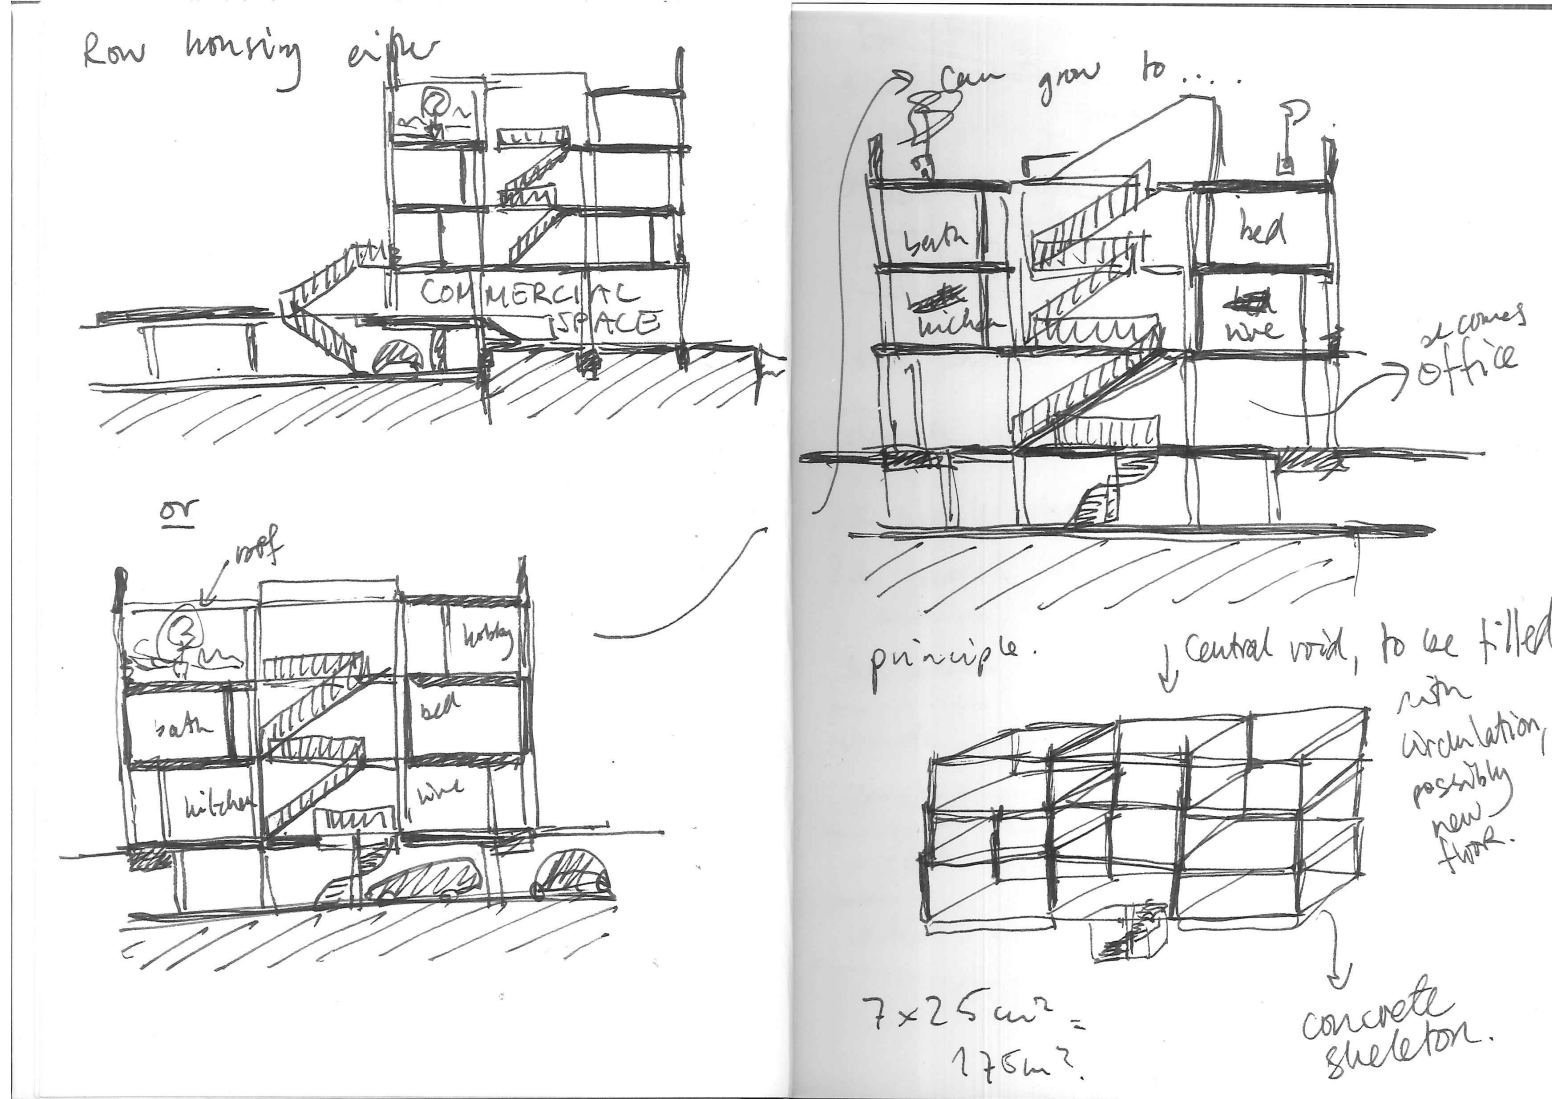 Row housing either
COMMERCIAL
SPACE
or
roof
hobby
bath
bed
kitchen
live
can grow to ....
bath
bed
kitchen
live
becomes
office
principle.
Central void, to be filled
with
circulation,
possibly
new
floor.
7 x 25 m² =
175 m².
concrete
skeleton.